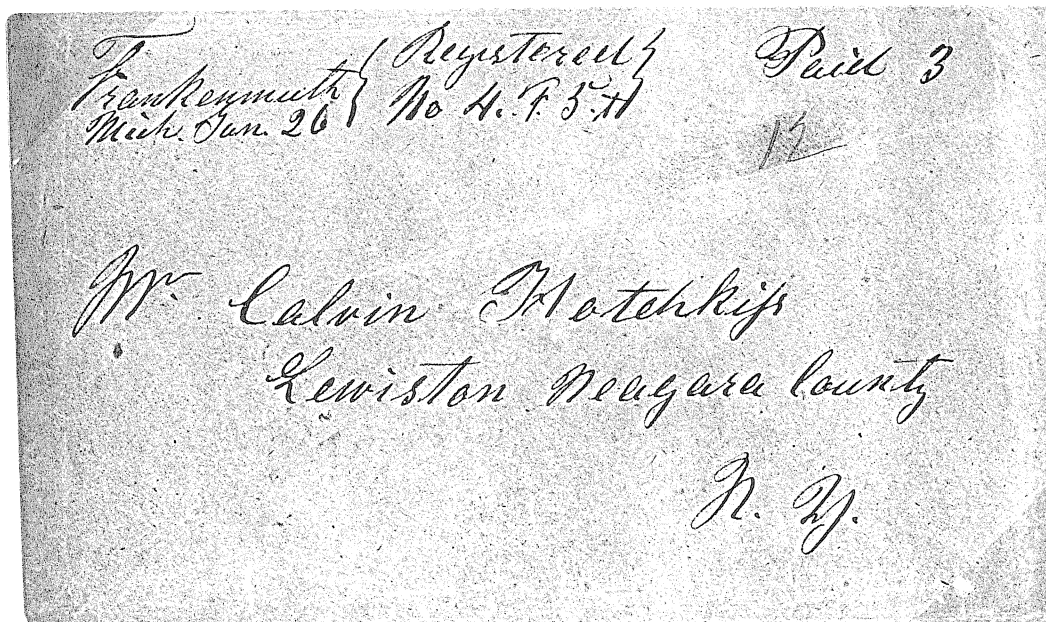 Frankenmuth
Mich. Jan. 26
Registered
No 4.
Paid 3
Mr. Calvin Hotchkiss
Lewiston Neagara County
N. Y.